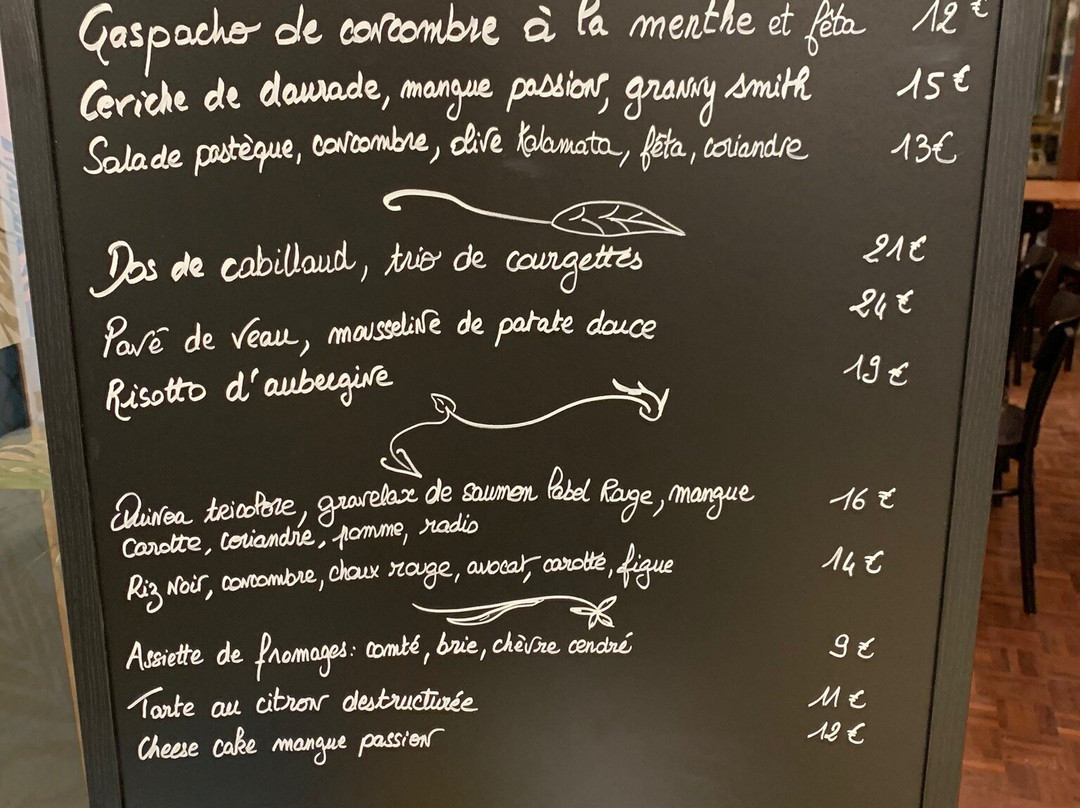 Gaspacho de concombre à la menthe et fêta 12 €
Ceviche de daurade, mangue passion, granny smith 15 €
Salade pastèque, concombre, olive Kalamata, fêta, coriandre 13€
Dos de cabillaud, trio de courgettes 21€
Pavé de veau, mousseline de patate douce 24 €
Risotto d'aubergine 19 €
Quinoa tricolore, gravelax de saumon label Rouge, mangue 16 €
Carotte, coriandre, pomme, radis
Riz Noir, concombre, choux rouge, avocat, carotte, figue 14 €
Assiette de fromages: comté, brie, chèvre cendré 9 €
Tarte au citron destructurée 11 €
Cheese cake mangue passion 12 €